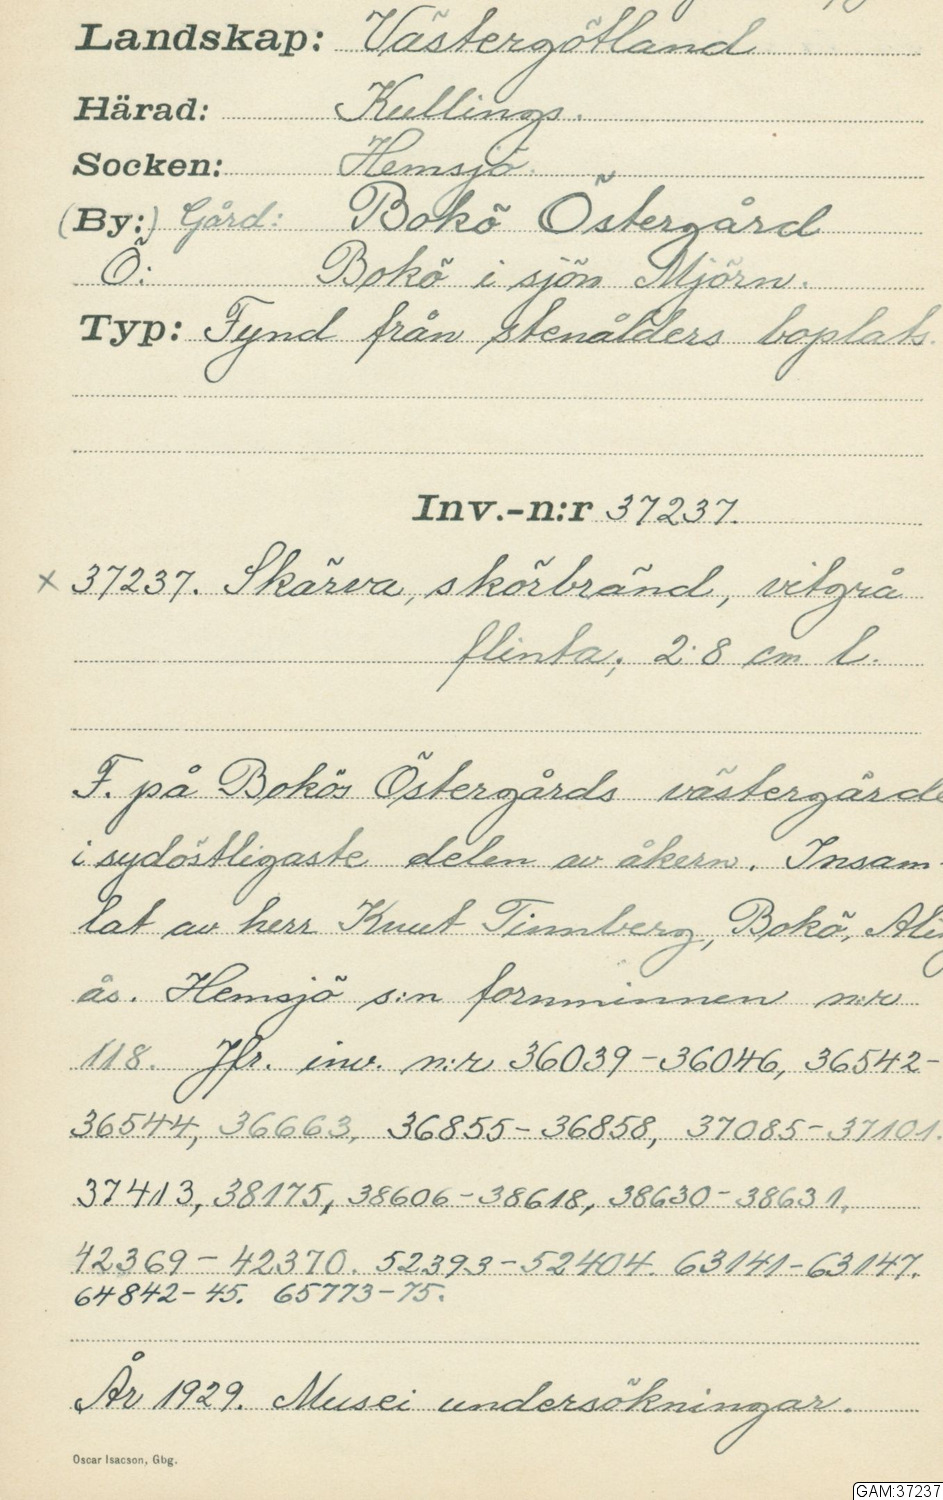 Landskap: Västergötland
Härad: Kullings.
Socken: Hemsjö.
(By:) Gård: Bokö Östergård
Ö: Bokö i sjön Mjörn.
Typ: Fynd från stenålders boplats.
Inv.-n:r 37237.
× 37237. Skärva, skörbränd, vitgrå
flinta; 2.8 cm l.
F. på Bokös Östergårds västergärde
i sydöstligaste delen av åkern. Insam-
lat av herr Knut Timmberg, Bokö, Aling
ås. Hemsjö s:n fornminnen n:r
118. Jfr. inv. n:r 36039-36046, 36542-
36544, 36663, 36855-36858, 37085-37101.
37413, 38175, 38606-38618, 38630-38631,
42369-42370. 52393-52404. 63141-63147.
64842-45. 65773-75.
År 1929. Musei undersökningar.
Oscar Isacson, Gbg.
GAM:37237